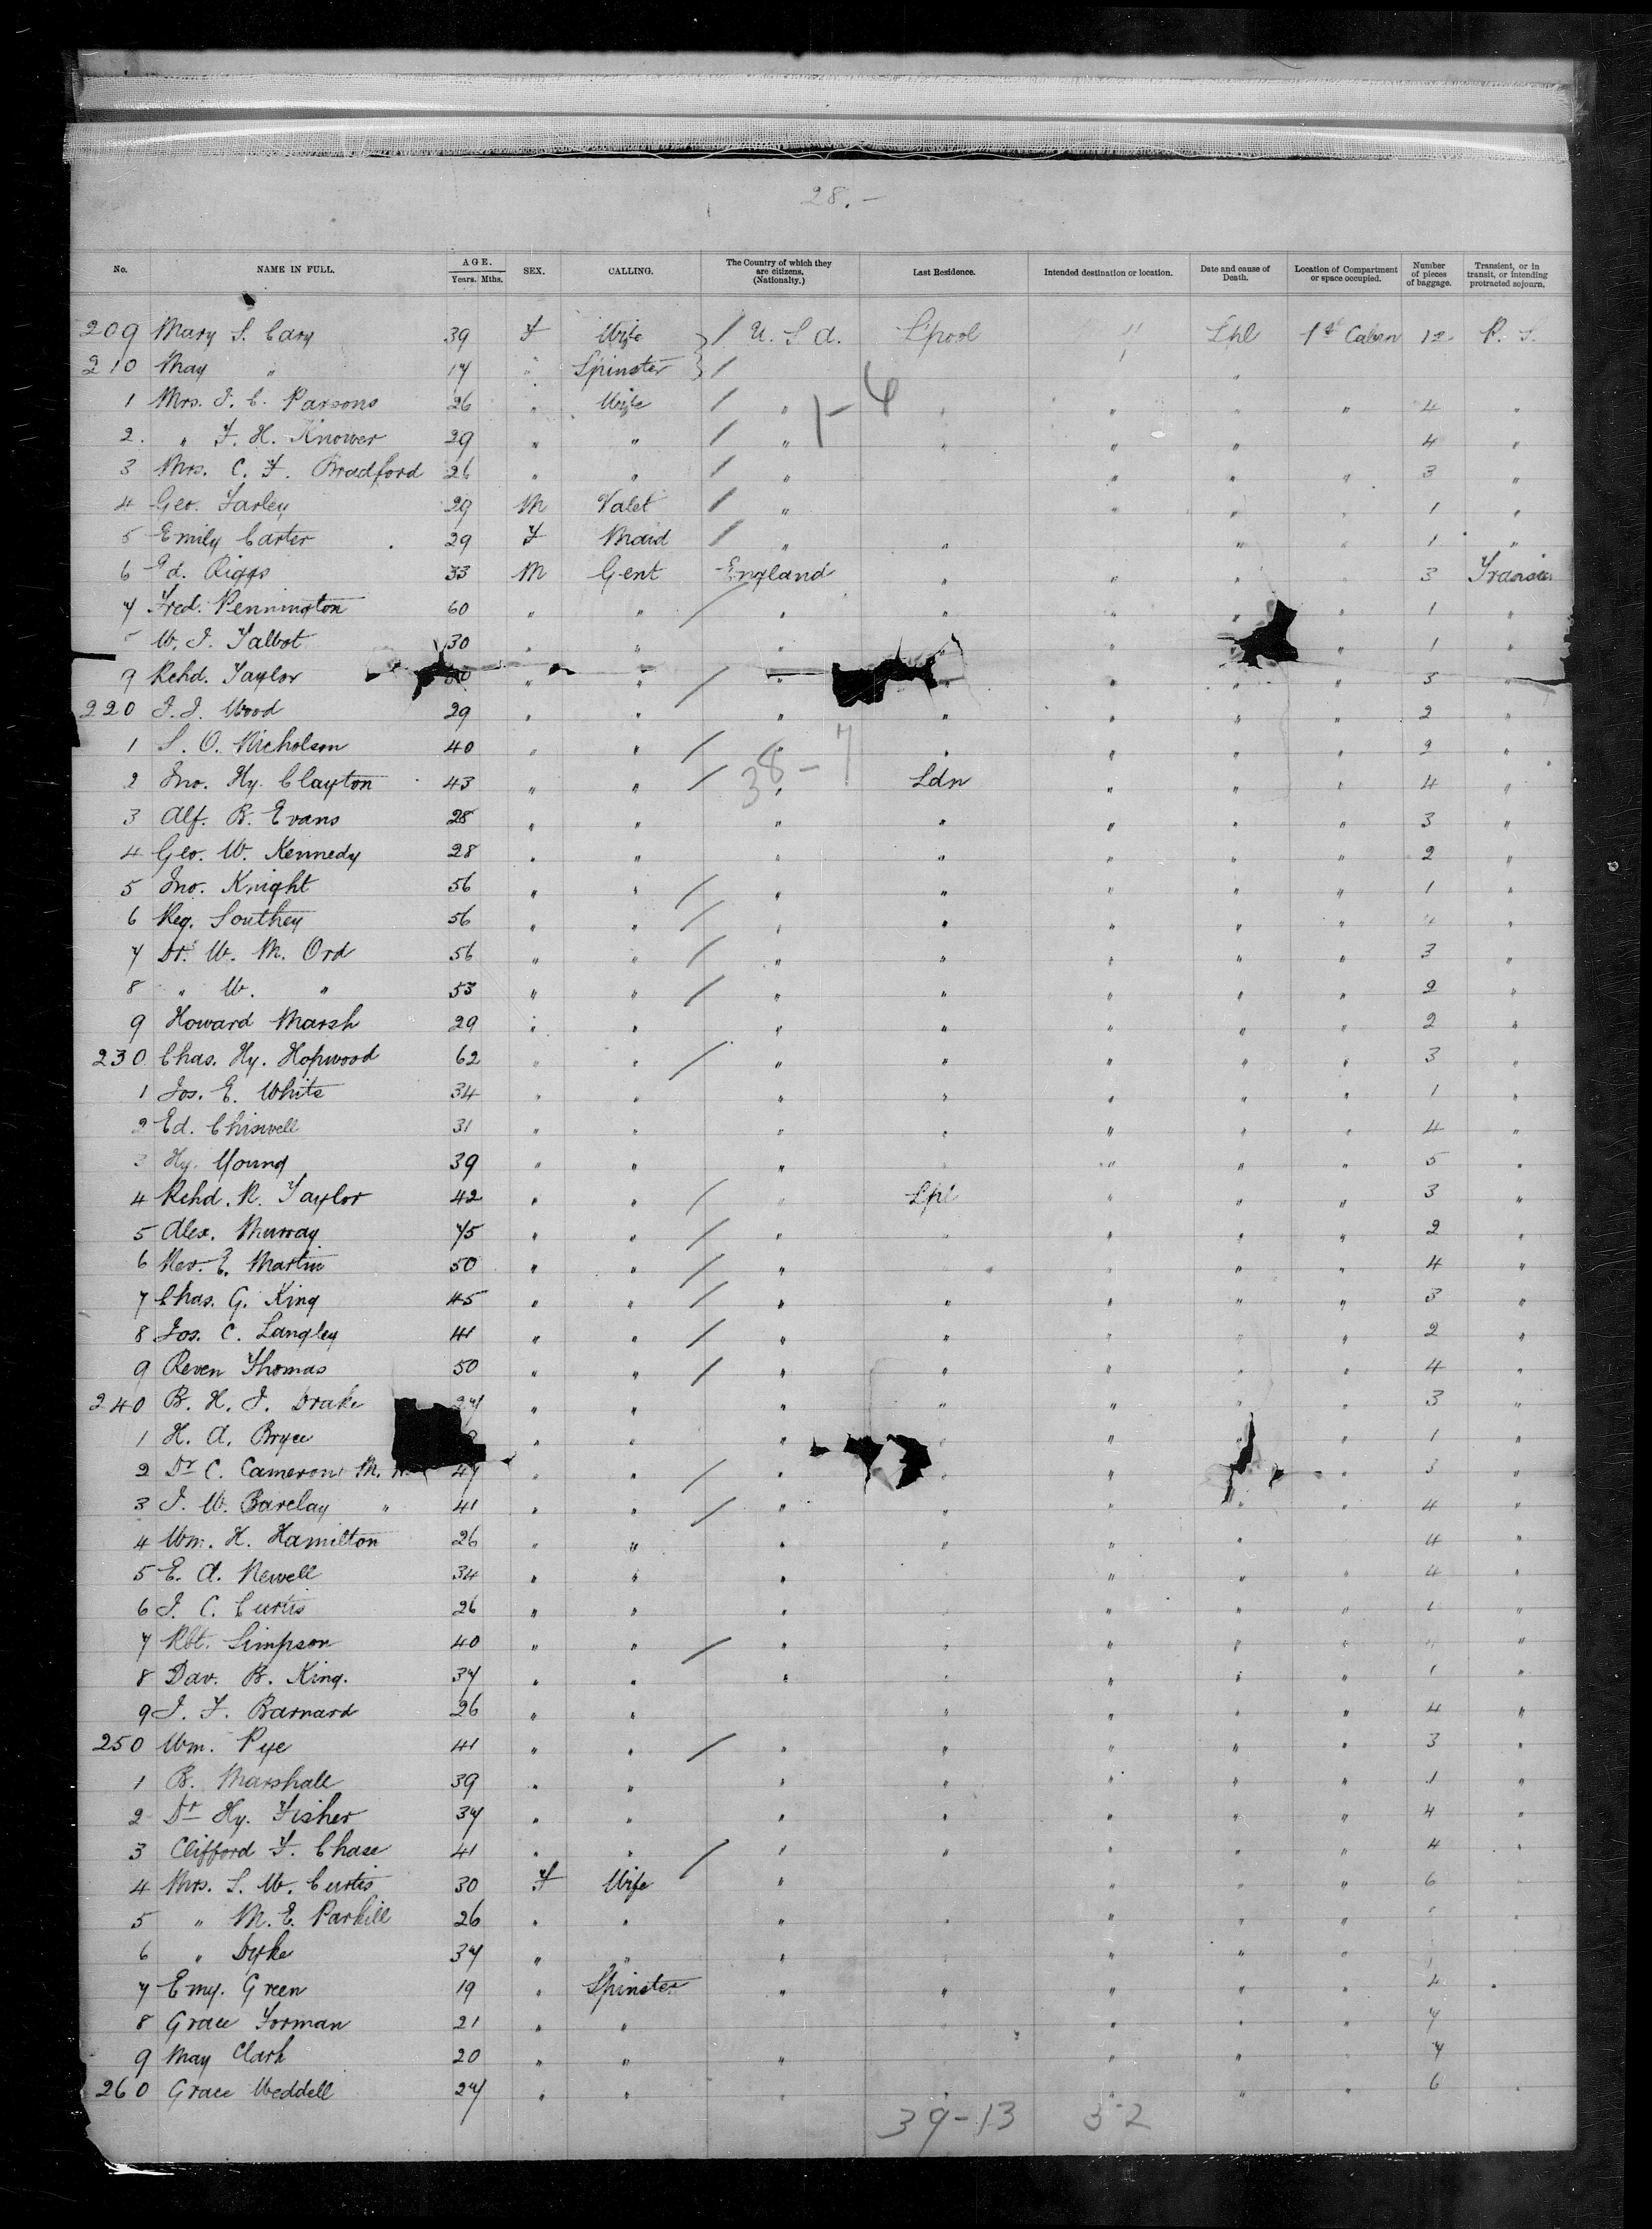 28.-
No. NAME IN FULL. AGE. Years. Mths. SEX. CALLING. The Country of which they are citizens. (Nationality.) Last Residence. Intended destination or location. Date and cause of Death. Location of Compartment or space occupied. Number of pieces of baggage. Transient, or in transit, or intending protracted sojourn.
209 Mary S. Cary 39 F Wife / U. S. A. L'pool " Lpl 1st Cabin 12 P. S.
210 May " 17 " Spinster / "
1 Mrs. J. C. Parsons 26 " Wife / " " " " " 4 "
1-4
2. " F. H. Knower 29 " " / " " " " 4 "
3 Mrs. C. F. Bradford 26 " " / " " " " 3 "
4 Geo. Farley 29 M Valet / " " " " 1 "
5 Emily Carter 29 F Maid / " " " " 1 "
6 Ed. Riggs 33 M Gent England " " " 3
7 Fred. Pennington 60 " " / " " " " " 1 "
W. J. Talbot 30 " " " " " " 1 "
9 Rchd. Taylor " " / " " " " " 3 "
220 J. J. Wood 29 " " " " " " " 2 "
1 S. O. Nicholson 40 " " / " " " " " 2 "
38-7
2 Jno. Hy. Clayton 43 " " / " Ldn " " " 4 "
3 Alf. B. Evans 28 " " " " " " " 3 "
4 Geo. W. Kennedy 28 " " " " " " " 2 "
5 Jno. Knight 56 " " / " " " " " 1 "
6 Reg. Southey 56 " " / " " " " " 4 "
7 Dr. W. M. Ord 56 " " / " " " " " 3 "
8 " W. " 53 " " / " " " " " 2 "
9 Howard Marsh 29 " " " " " " " 2 "
230 Chas. Hy. Hopwood 62 " " / " " " " " 3 "
1 Jos. E. White 34 " " " " " " " 1 "
2 Ed. Chiswell 31 " " " " " " " 4 "
3 Hy. Young 39 " " " " " " 5 "
4 Rchd. R. Taylor 42 " " / " Lpl " " " 3 "
5 Alex. Murray 75 " " / " " " " 2 "
6 Rev. E. Martin 50 " " / " " " " " 4 "
7 Chas. G. King 45 " " / " " " " " 3 "
8 Jos. C. Langley 41 " " / " " " " " 2 "
9 Reven Thomas 50 " " / " " " " " 4 "
240 B. H. J. Drake 27 " " " " " " " 3 "
1 H. A. Bryce " " " " " " 1 "
2 Dr. C. Cameron M. 47 " " / " " " " 3 "
3 J. W. Barclay " 41 " " / " " " " " 4 "
4 Wm. H. Hamilton 26 " " " " " " 4 "
5 E. A. Newell 34 " " " " " " 4 "
6 J. C. Curtis 26 " " " " " " 1 "
7 Rbt. Simpson 40 " " / " " " " " "
8 Dav. B. King. 37 " " " " " " " 1 "
9 J. F. Barnard 26 " " " " " " 4 "
250 Wm. Pye 41 " " / " " " " " 3 "
1 B. Marshall 39 " " " " " " " 1 "
2 Dr. Hy. Fisher 37 " " " " " " " 4 "
3 Clifford F. Chase 41 " " / " " " " " 4 "
4 Mrs. S. W. Curtis 30 F Wife " " " " 6
5 " M. E. Parkill 26 " " " " " " "
6 " Dyke 37 " " " " " "
7 Emy. Green 19 " Spinster " " " " " 4 "
8 Grace Forman 21 " " " " " 7
9 May Clark 20 " " " " " 7
260 Grace Weddell 27 " " " " " " 6 "
39-13 52